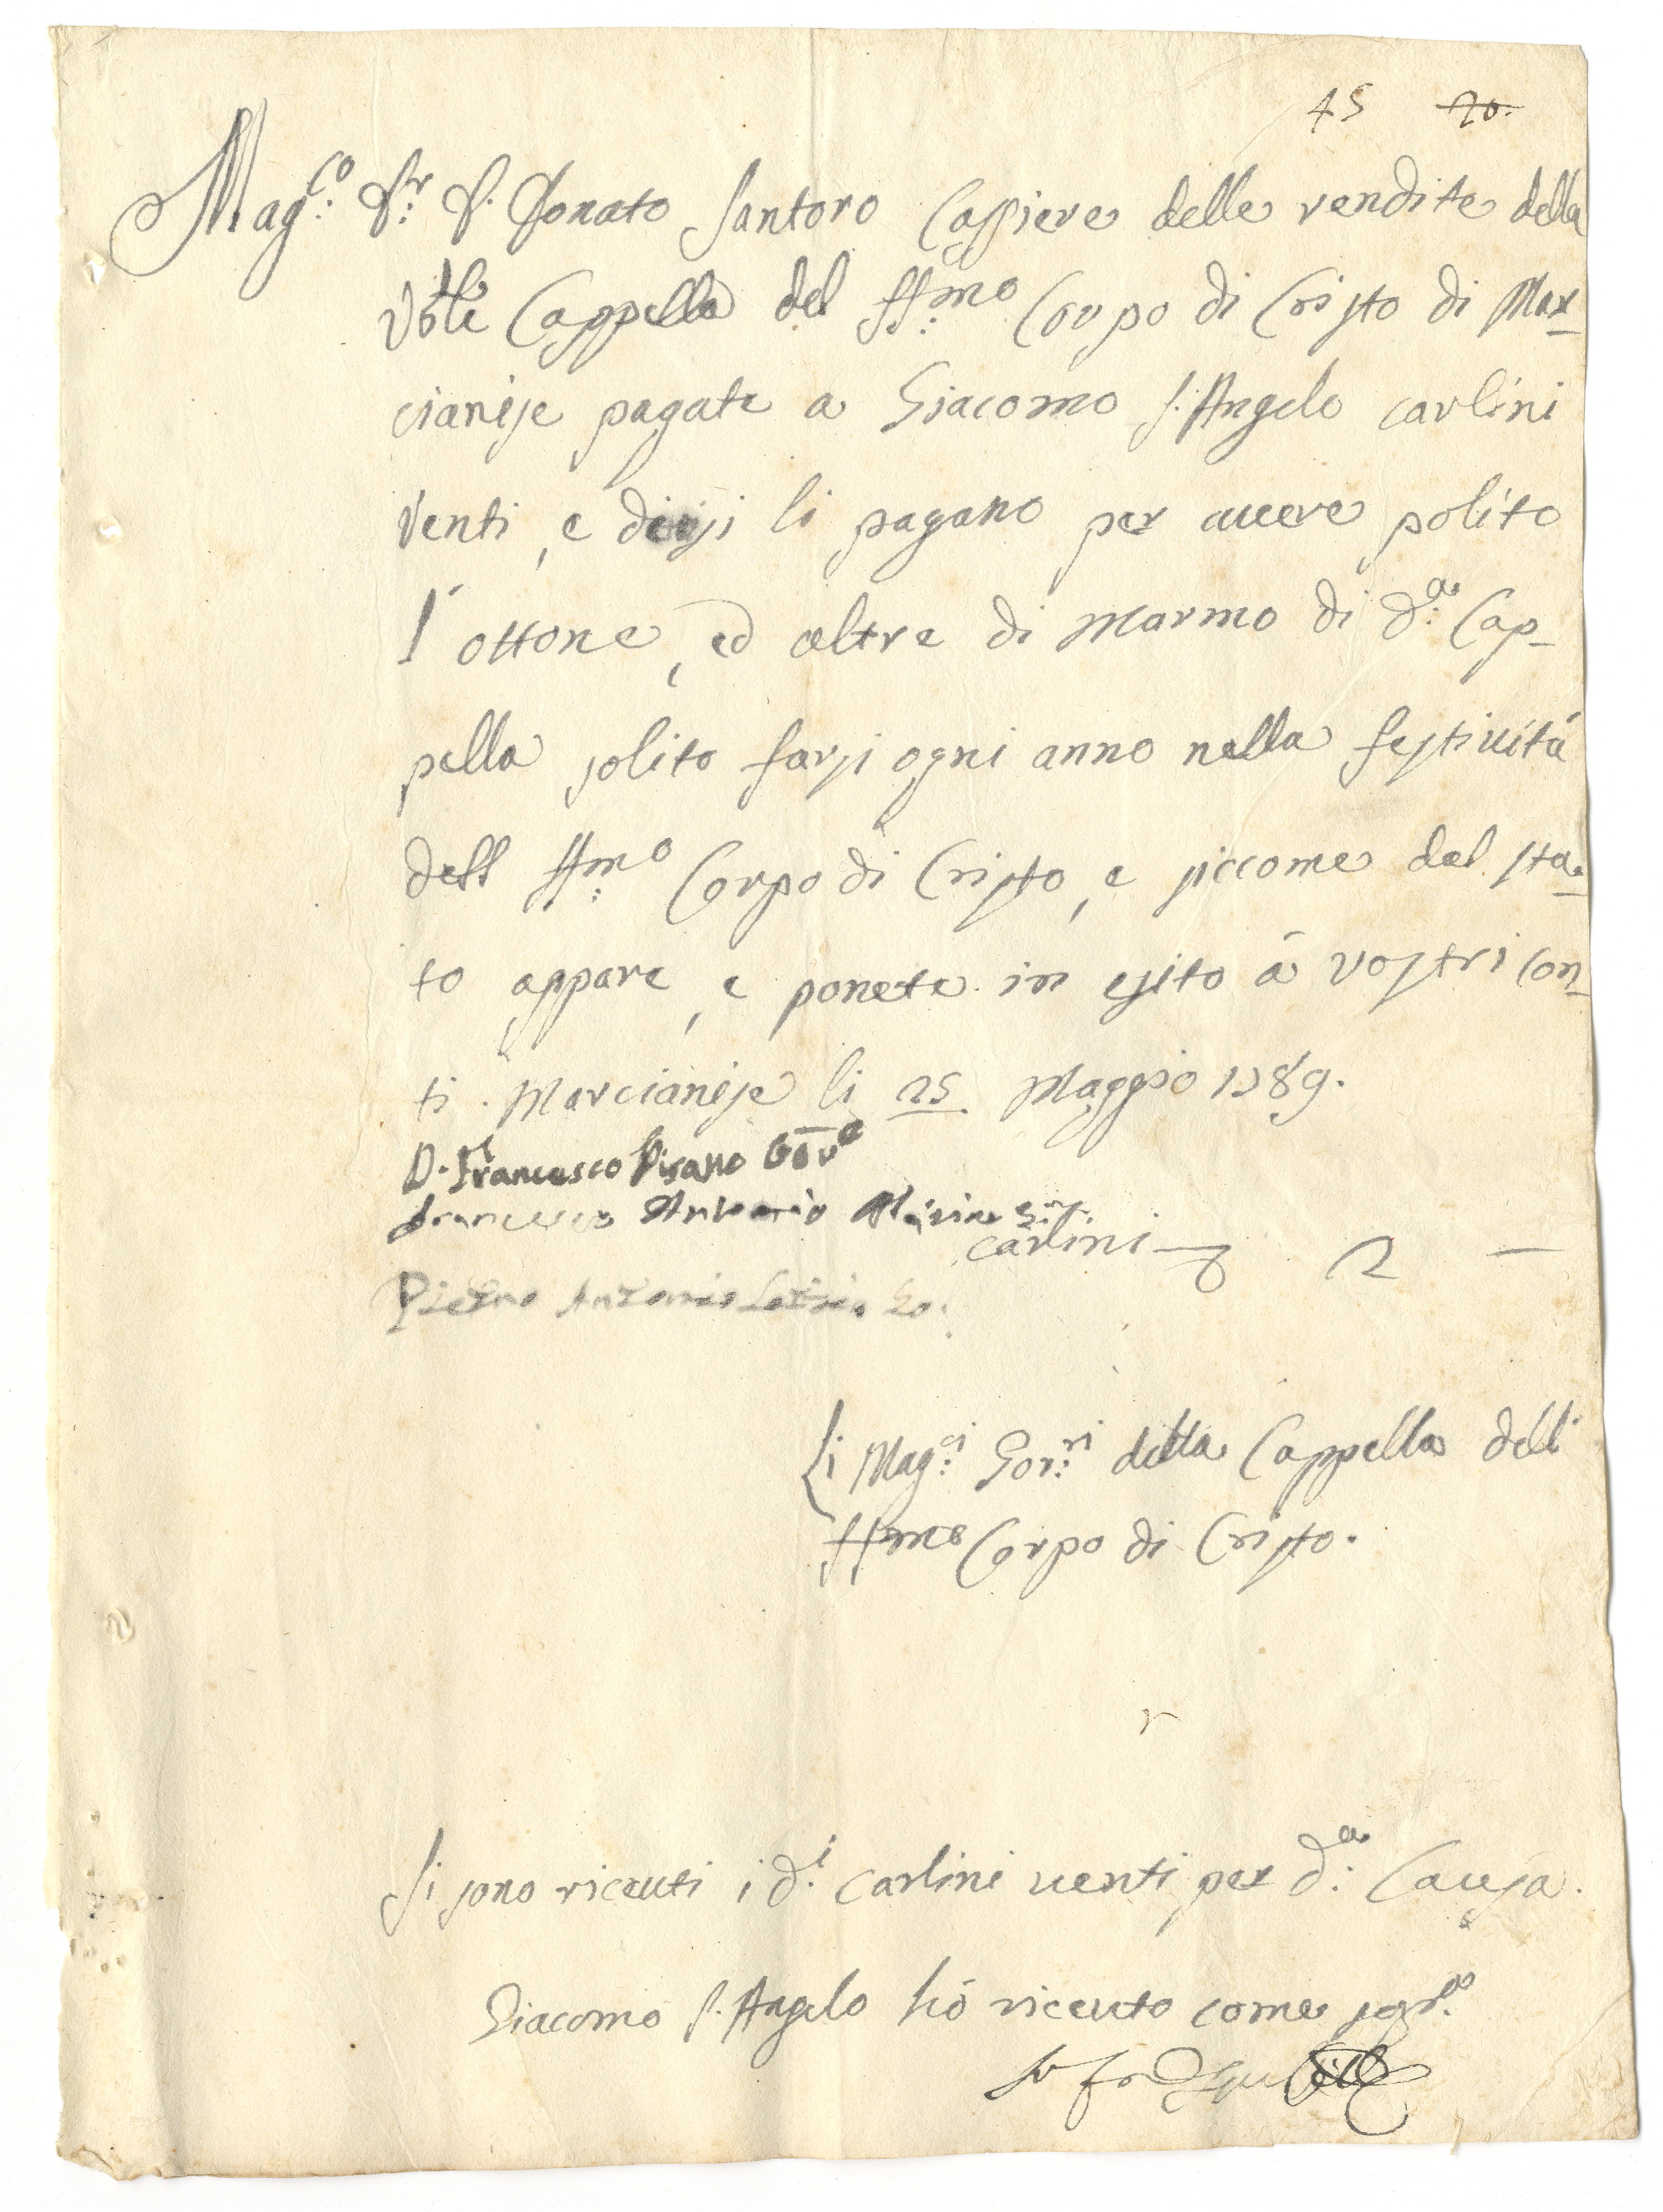 45 70.
Mag:co Sr: D. Donato Santoro Cassiere delle rendite della
Vble Cappella del SS:mo Corpo di Cristo di Mar-
cianise pagate a Giacomo S. Angelo carlini
venti, e diesi li pagano per avere polito
l'ottone, ed altre di marmo di d:a Cap-
pella solito farsi ogni anno nella festività
dell SS:mo Corpo di Cristo, e siccome dal sta-
to appare, e ponete in esito à vostri con-
ti. Marcianise li 25 Maggio 1789.
D. Francesco Pisano Gove
Francesco Antonio
carlini 2 —
Pietro Antonio
Li Mag:ci Gor:ri della Cappella dell
SSmo Corpo di Cristo.
Si sono riceuti i d:i Carlini venti per d:a Causa.
Giacomo S. Angelo hò riceuto come sopr:a